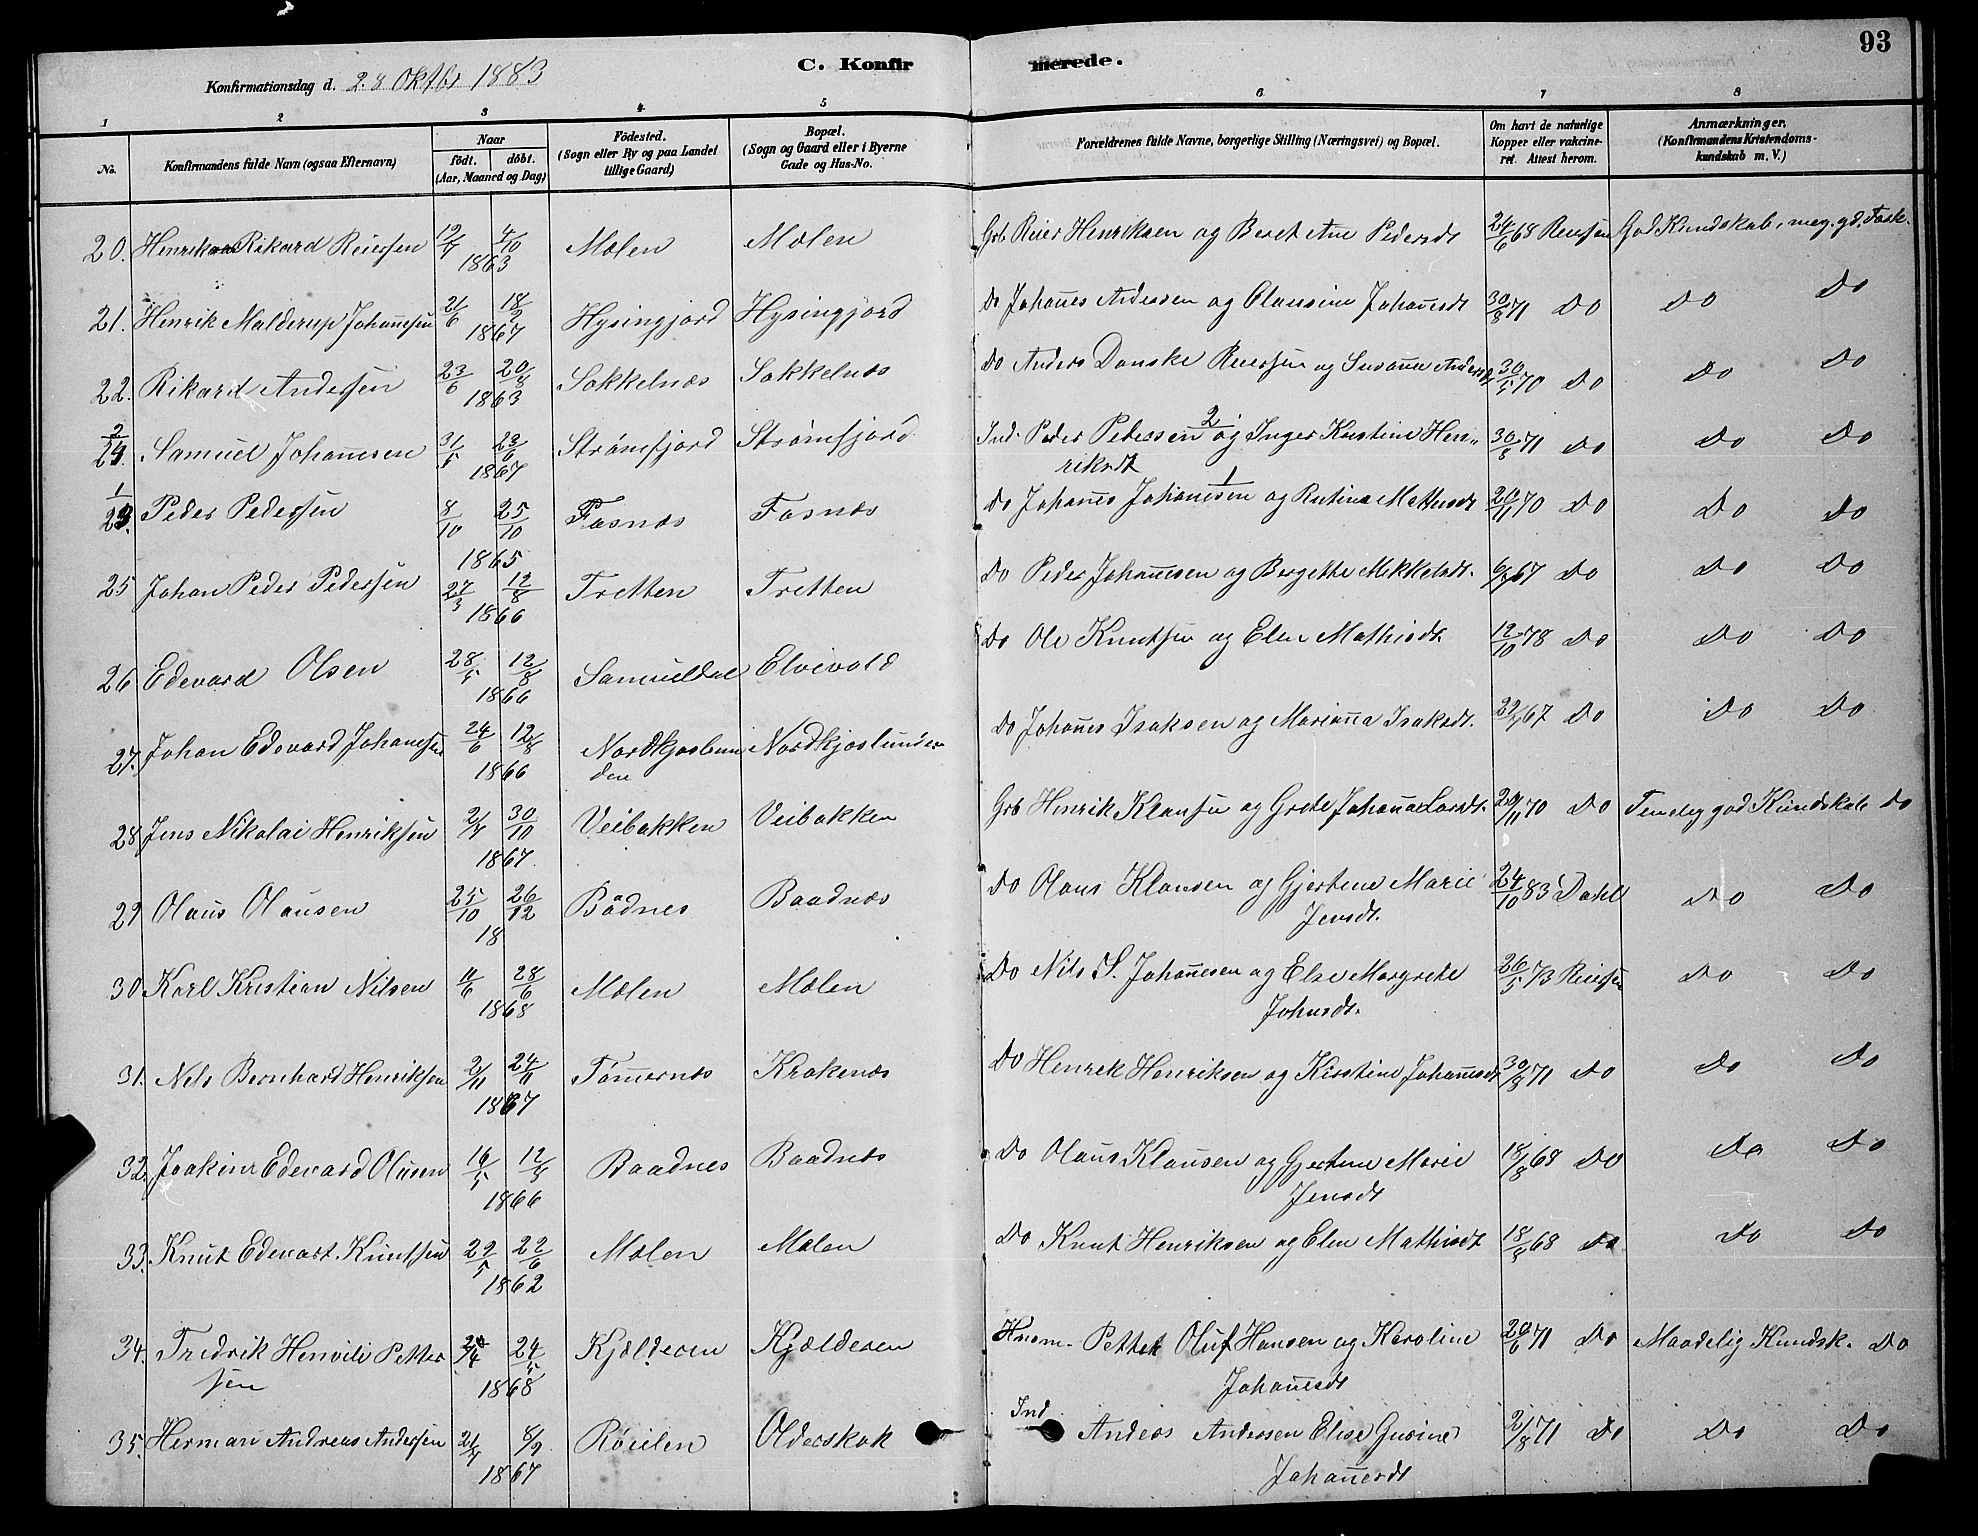 93
Konfirmationsdag d. 28 Oktbr 1883
C. Konfir merede.
1 2 3 4 5 6 7 8
No.
Konfirmandens fulde Navn (ogsaa Efternavn)
Naar
født. døbt.
(Aar, Maaned og Dag)
Fødested.
(Sogn eller By og paa Landet
tillige Gaard)
Bopæl.
(Sogn og Gaard eller i Byerne
Gade og Hus-No.
Forældrenes fulde Navne, borgerlige Stilling (Næringsvei) og Bopæl.
Om havt de naturlige
Kopper eller vakcine-
ret. Attest herom.
Anmærkninger.
(Konfirmandens Kristendoms-
kundskab m. V.)
20. Henrik Rikard Reiersen 12/7 4/10 1863 Mælen Mælen Grb Reier Henriksen og Beret Ane Pedersdt 24/6 68 Reiersen God Kundskab, meg. gd.
21. Henrik Malderup Johannesen 21/6 18/2 1867 Hysingjord Hysingjord Do Johannes Andersen og Olausine Johanesdt 30/8 71 Do Do Do
22. Rikard Andersen 23/6 20/8 1863 Sakkelnæs Sakkelnæs Do Anders Danske Reiersen og Susanna Andersdt 30/5 70 Do Do Do
2/24. Samuel Johannesen 31/5 23/6 1867 Strømfjord Strømfjord Ind. Peder Pedersen 2 og Inger Kristine Hen-
riksdt 30/8 71 Do Do Do
1/23. Peder Pedersen 8/10 25/10 1865 Fasnæs Fasnæs Do Johanes Johannesen 1 og Mathisdt 20/11 70 Do Do Do
25 Johan Peder Pedersen 27/3 12/8 1866 Tretten Tretten Do Peder Johannesen og Bergette Mikkelsdt. 67 Do Do Do
26 Edevard Olsen 28/5 12/8 1866 Samueldal Elvevold Do Ole Knutsen og Elen Mathisdt 12/10 78 Do Do Do
27. Johan Edevard Johannesen 24/6 12/8 1866 Nordkjoslun
den Nordkjoslunden Do Johanes Isaksen og Marianna Isaksdt. 67 Do Do Do
28 Jens Nikolai Henriksen 2/7 30/10 1867. Veibakken Veibakken Grb Henrik Klausen og Grete Johanna Larsdt. 20/11 70 Do Temelig god Kundskab Do
29 Olaus Olausen 25/10 26/12 18 Bådnes Baadnæs Do Olaus Klausen og Gjertine Marie
Jensdt. 24/10 83 Dahl Do Do
30 Karl Kristian Nilsen 11/6 28/6 1868 Mælen Mælen Do Nils S. Johannesen og Else Margrete
Johnsdt. 26/5 73 Reiersen Do Do
31. Nels Bernhard Henriksen 2/11 24/11 1867 Tømernes Krakenæs Do Henrek Henriksen og Kirstine Johannesdt 30/8 71 Do Do Do
32. Joakim Edevard Olausen 16/5 12/8 1866 Baadnes Baadnæs Do Olaus Klausen og Gjertine Marie
Jensdt 18/8 68 Do Do Do
33. Knut Edevart Knutsen 22/5 22/6 1862 Mælen Mælen Do Knut Henriksen og Elen Mathisdt 18/8 68 Do Do Do
34. Fredrik Petter
sen 24/5 1868 Kjælderen Kjælderen Husm. Petter Oluf Hansen og Karoline
Johannesdt 20/6 71 Do Maadelig Kundsk. Do
35. Herman Andreas Andersen 21/7 8/9 1867 Røielen Olderskak Ind Anders Andersen Elise
Johannesdt 2/8 71 Do Do Do